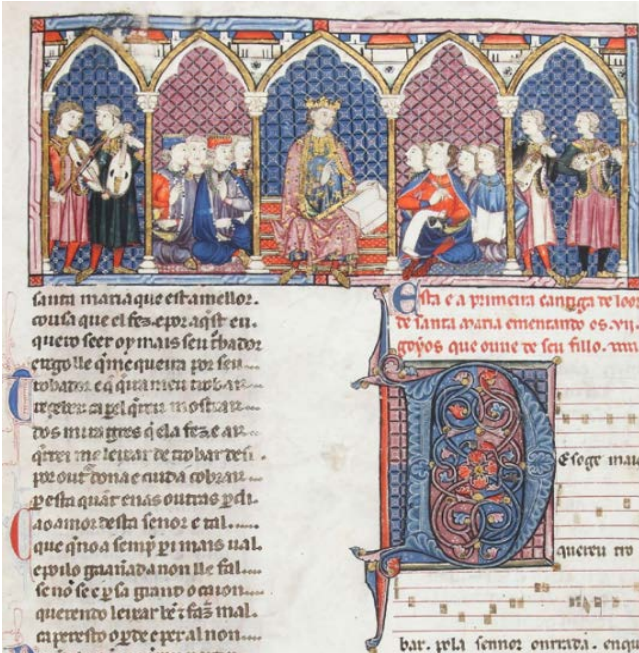 santa maria que est a mellor.
cousa que el fez. e por aqst eu.
quero seer oy mais seu trobador
e rogo lle q me queira por seu
trobador e q qira meu trobar
reçeber ca per el qreu mostrar
dos miragres q ela fez e ar
qrrei me leixar de trobar desi
por outra dona e cuid a cobrar
per esta quant enas outras pdi.
Ca o amor desta sennor e tal
que q no a semp p i mais ual.
e poilo gaannada non lle fal
se nõ se e p sa grand ocaion
querendo leixar bẽ τ faz mal.
ca per esto o pde e per al non
Esta e a primeira cantiga de loor
de santa maria ementando os .vij.
goyos que ouue de seu fillo.
Des oge mais
quereu tro
bar. pola sennor onrrada. enque